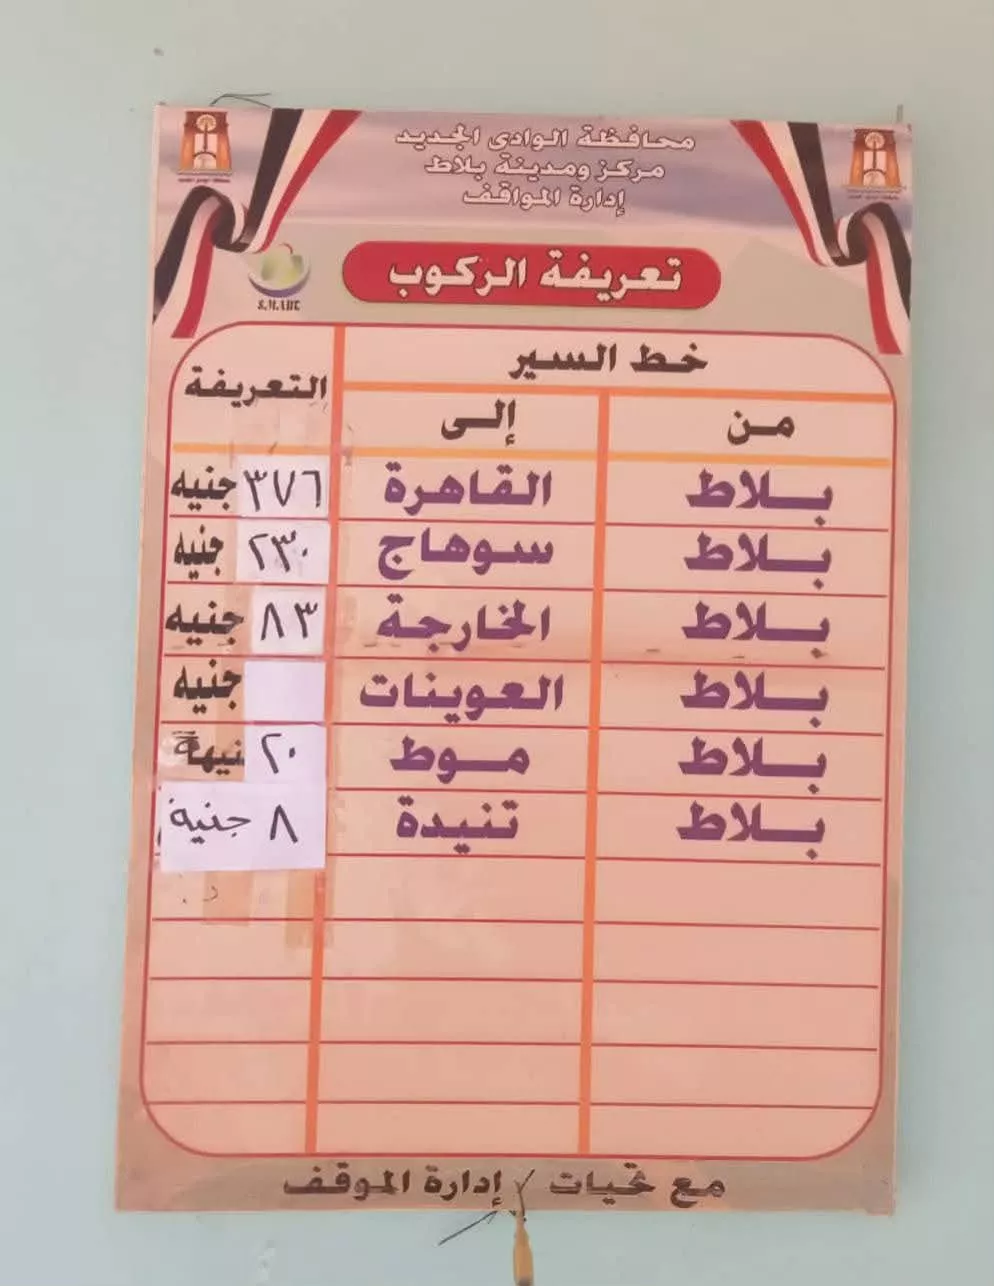 محافظة الوادى الجديد
مركز ومدينة بلاط
إدارة المواقف
تعريفة الركوب
S.M.ART
خط السير
التعريفة
من إلى
بلاط القاهرة ٣٧٦ جنيه
بلاط سوهاج ٢٣٠ جنيه
بلاط الخارجة ٨٣ جنيه
بلاط العوينات جنيه
بلاط موط ٢٠ نيهة
بلاط تنيدة ٨ جنية
مع تحيات / إدارة الموقف